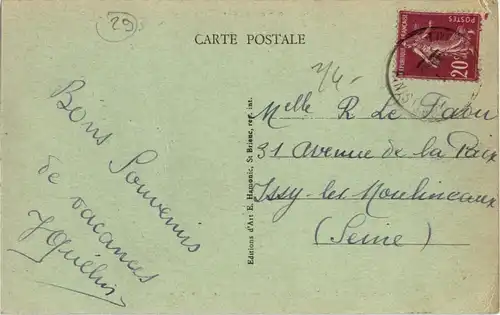 29
CARTE POSTALE
POSTES
REPUBLIQUE FRANCAISE
20c
Bons Souvenirs
de vacances
Melle R Le Faou
31 avenue de la Paix
Issy-les-Moulineaux
(Seine)
Editions d'Art E. Hamonic, St Brieuc, rep. int.